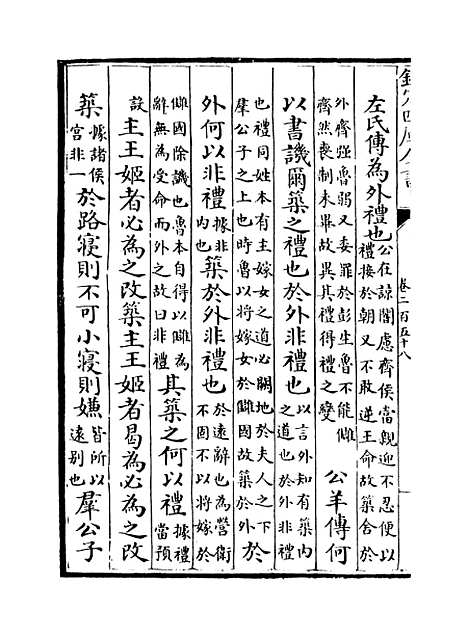 欽定四庫全書
卷二百五十八
左氏傳為外禮也公在諒闇慮齊侯當親迎不忍便以禮接於朝又不敢逆王命故築舍於
外齊强魯弱又委罪於彭生魯不能讎齊然喪制未畢故異其禮得禮之變公羊傳何
以書譏爾築之禮也於外非禮也以言外知有築内之道也於外非禮
也禮同姓本有主嫁女之道必闕地於夫人之下羣公子之上也時魯以將嫁女於讎國故築於外於
外何以非禮據非内也築於外非禮也於遠辭也為營衛不固不以將嫁於
讎國除譏也魯本自得以讎為辭無為受命而外之故曰非禮其築之何以禮據禮當預
設主王姬者必為之改築主王姬者曷為必為之改
築據諸侯宮非一於路寢則不可小寢則嫌皆所以遠别也羣公子